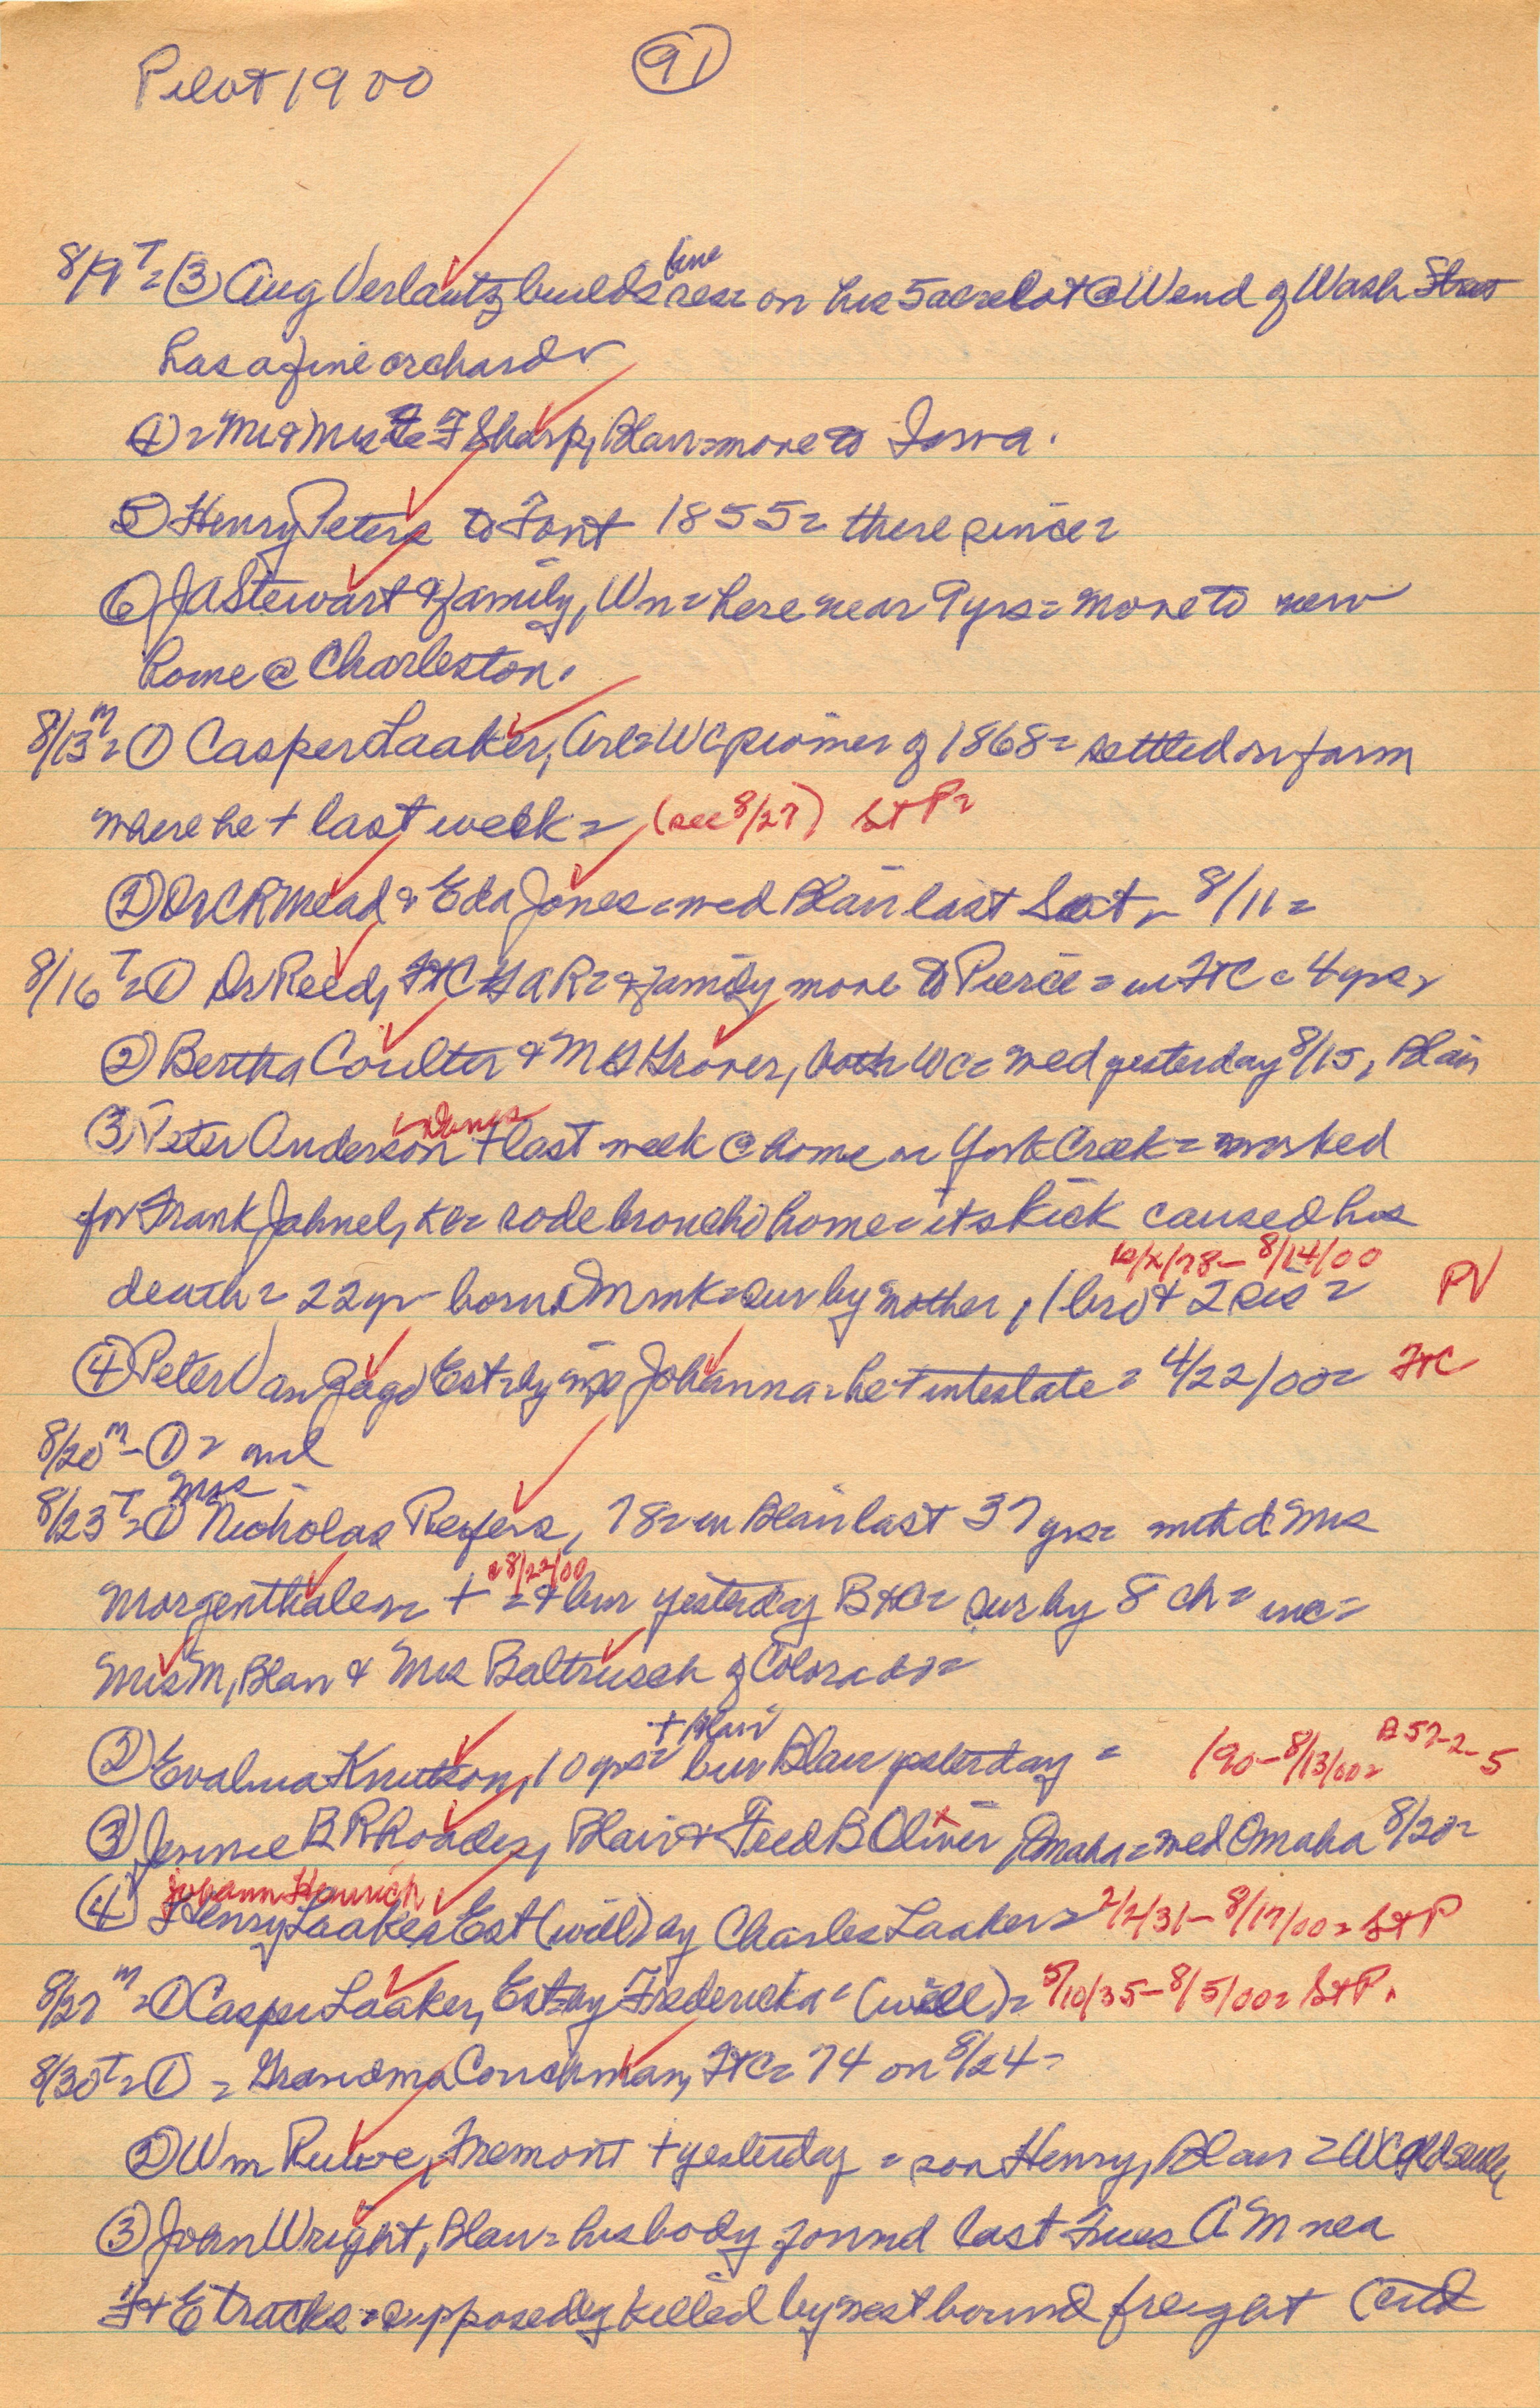 Pilot 1900 (91)
8/9 T = (3) Aug Verlautz builds fine res = on his 5 acre lot @ W end of Wash Stres
has a fine orchard
(4) = Mr & Mrs F Sharp, Blair = move to Iowa.
(5) Henry Peters to Font 1855 = there since =
(6) JA Stewart & family, Wn = here near 9 yrs = move to new
home @ Charleston.
8/13 M = (1) Casper Laaker, Arl = WC pioneer of 1868 = settled on farm
where he + last week = (see 8/27) St P =
(2) Dr CR Mead & Eda Jones = wed Blair last Sat - 8/11 =
8/16 T = (1) Dr Reed, FtC GAR = & family move to Pierce = in FtC = 4 yrs
(2) Bertha Coulter & M G Grover, both WC = wed yesterday 8/15, Blair
(3) Peter Anderson Danes + last week @ home on York Creek = worked
for Frank Jahnel, = rode broncho home = its kick caused his
death = 22 yr born Dnmk = sur by mother, 1 bro & 2 sis = /x/78 - 8/14/00 PV
(4) Peter Van Est = by wife Johanna = he + intestate = 4/22/00 = FtC
8/20 M - (1) = nil
8/23 T = (1) Mrs Nicholas Reyers, 78 = in Blair last 37 yrs = Mrs
Morgenthaler = + = & bur yesterday B+C = sur by 8 ch = inc = @ 8/22/00
Mrs M, Blair & Mrs Baltrusch of Colorado =
(2) Evalina Knutson, 10 yrs = + Blair bur Blair yesterday = /90 - 8/13/00 = B 57-2-5
(3) Jennie B Rhoades, Blair & Fred B Oliver, Omaha = wed Omaha 8/20 =
(4) Johann Heinrich Henry Laaker Est (will) by Charles Laaker = 2/2/31 - 8/17/00 = St P
8/27 M = (1) Casper Laaker, Est by Fredericka = (will) = 5/10/35 - 8/5/00 = St P.
8/30 T = (1) = Grandma Couchman, FtC = 74 on 8/24 =
(2) Wm Ruwe, Fremont + yesterday = son Henry, Blair = WC
(3) John Wright, Blair = his body found last Tues AM nea
F & E tracks = supposedly killed by westbound freight